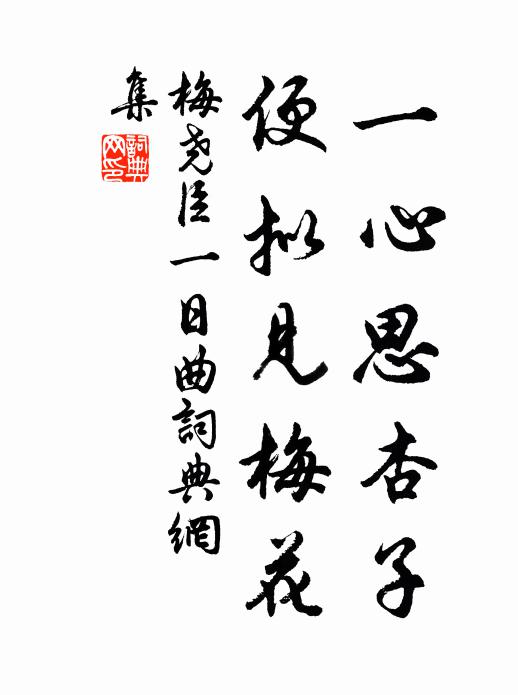 一心思杏子
便拟見梅花
梅尧臣一日曲詞典網
集
詞典
网印